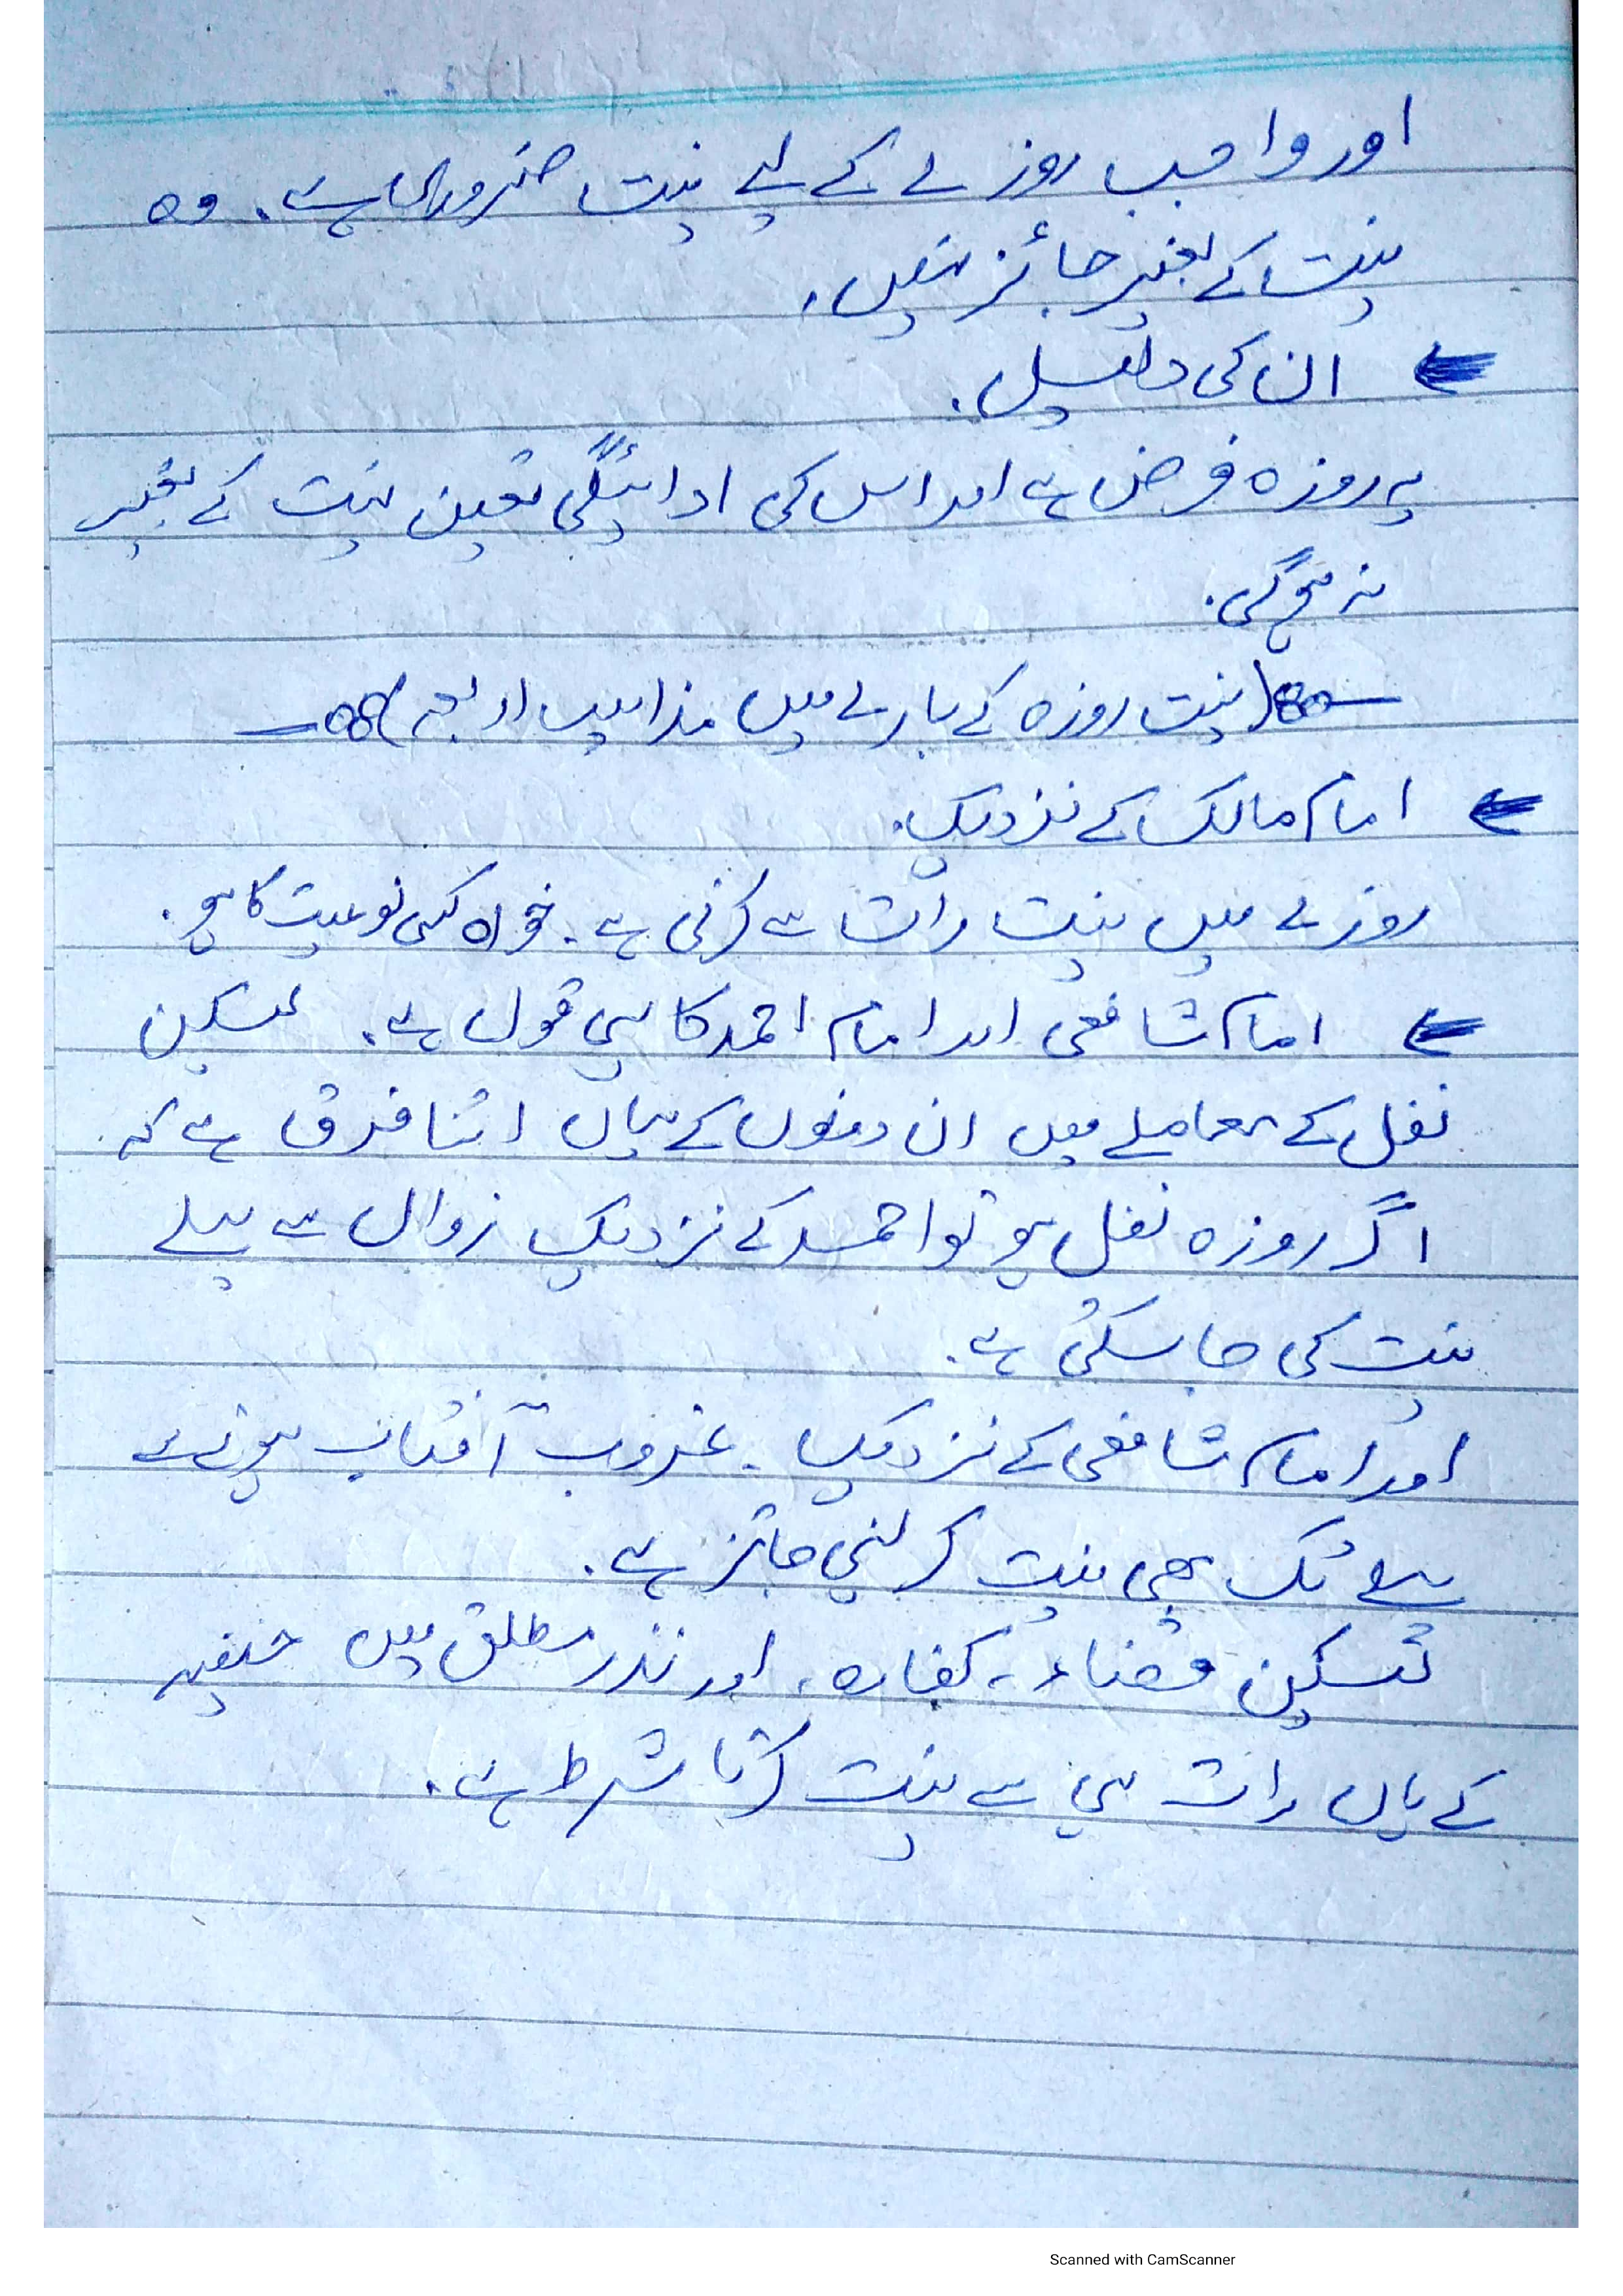 اور واجب روزے کے لیے نیت ضروری ہے۔ وہ
نیت کے بغیر جائز نہیں۔
ان کی دلیل۔
یہ روزہ فرض ہے اور اس کی ادائیگی تعین نیت کے بغیر
نہ ہوگی۔
(نیت روزہ کے بارے میں مذاہب اربعہ)
امام مالک کے نزدیک۔
روزے میں نیت رات سے کرنی ہے۔ خواہ کسی نوعیت کا ہو۔
امام شافعی اور امام احمد کا یہی قول ہے۔ لیکن
نفل کے معاملے میں ان دونوں کے ہاں اتنا فرق ہے کہ
اگر روزہ نفل ہو تو احمد کے نزدیک زوال سے پہلے
نیت کی جا سکتی ہے۔
اور امام شافعی کے نزدیک۔ غروب آفتاب ہونے سے
پہلے تک بھی نیت کر لینی جائز ہے۔
لیکن قضاء، کفارہ، اور نذر مطلق میں حنفیہ
کے ہاں رات ہی سے نیت کرنا شرط ہے۔
Scanned with CamScanner